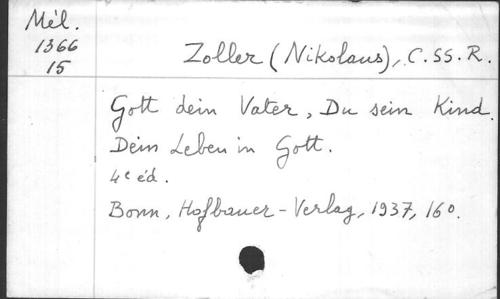 Mél.
1366
15
Zoller (Nikolaus), C.SS.R.
Gott dein Vater, Du sein Kind.
Dein Leben in Gott.
4e éd.
Bonn, Hofbauer-Verlag, 1937, 16o.